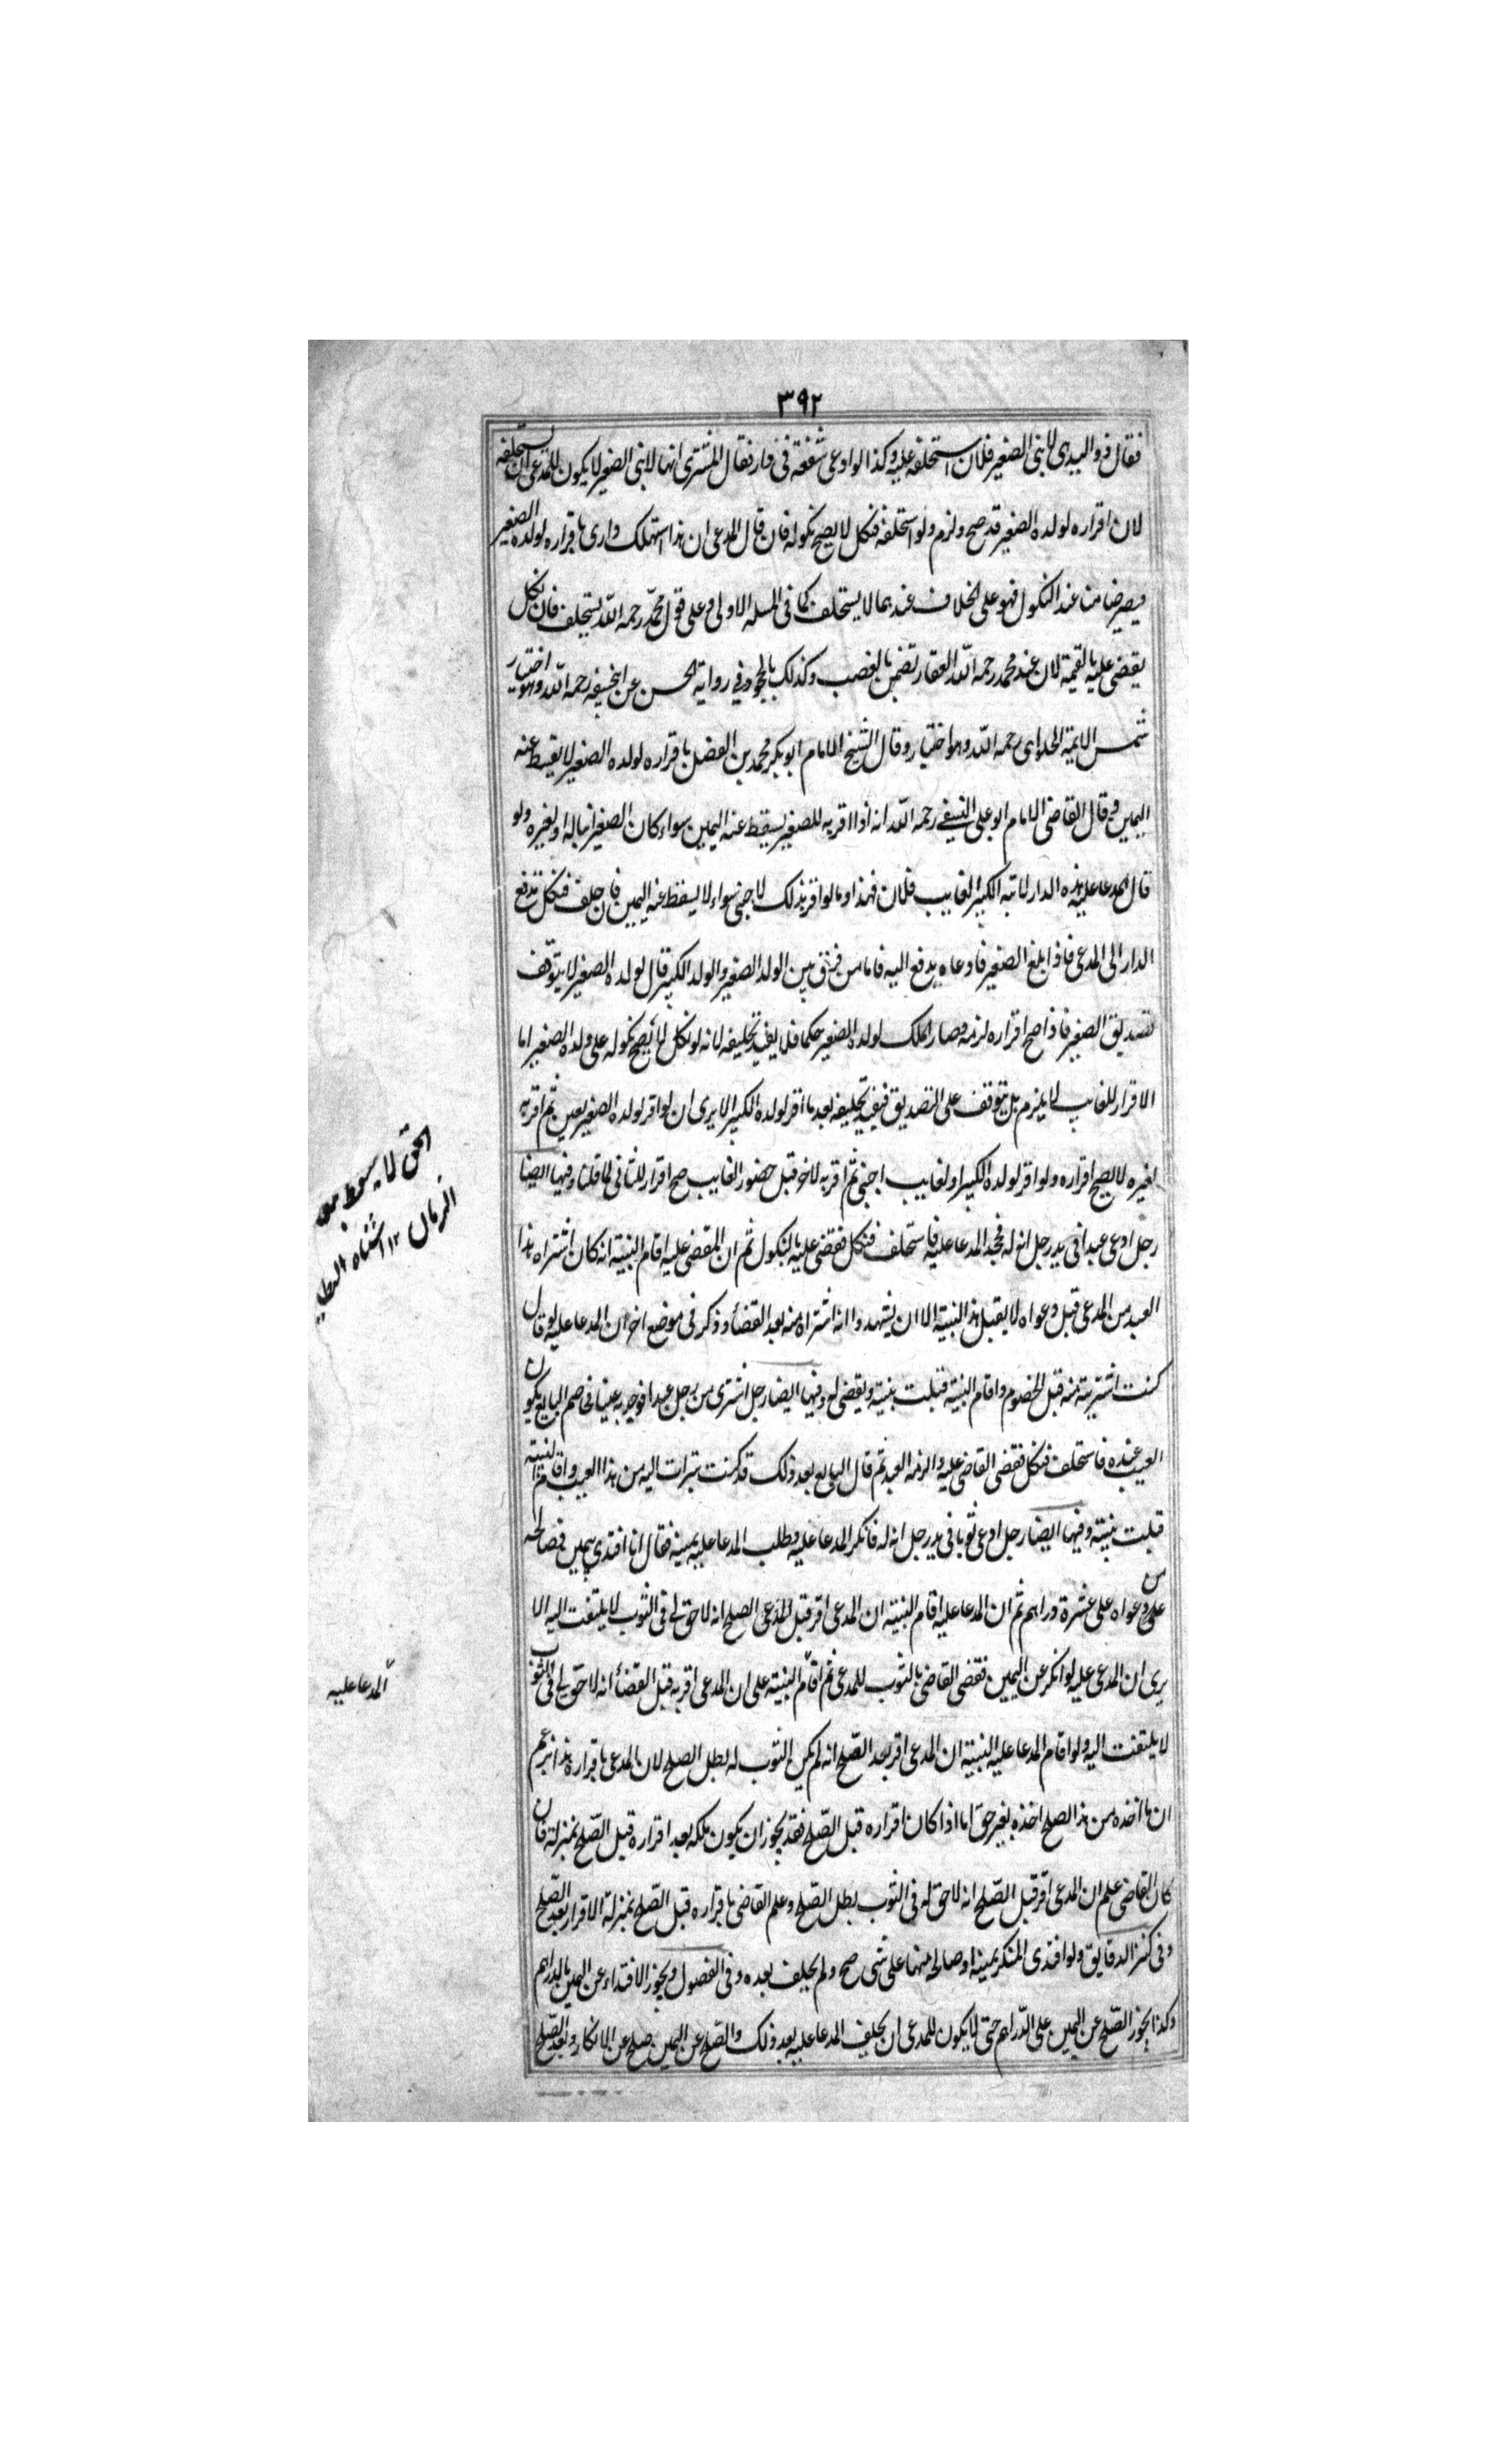 ٣٩٢
فقال ذو اليد هى لابنى الصغير فلان استحلفه عليه وكذا لو ادعى شفعة فى دار فقال المشترى انها لابنى الصغير لا يكون للمدعى ان يستحلفه
لان اقراره لولده الصغير قد صح ولزم ولو استحلفه فنكل لا يصح نكوله فان قال المدعى ان هذا استهلك دارى باقراره لولده الصغير
فيصير ضامنا عند النكول فهو على الخلاف عندهما لا يستحلف كما فى المسئله الاولى وعلى قول محمد رحمه الله يستحلف فان نكل
يقضى عليه بالقيمة لان عند محمد رحمه الله العقار تضمن بالغصب وكذلك بالجحود فى رواية الحسن عن ابيحنيفه رحمه الله وهو اختيار
شمس الايمة الحلواى رحمه الله وهو اختيار وقال الشيخ الامام ابو بكر محمد بن الفضل باقراره لولده الصغير لا يقسط عنه
اليمين وقال القاضى الامام ابو على النسفى رحمه الله انه اذا اقر به للصغير يسقط عنه اليمين سواء كان الصغير ابنا له او لغيره ولو
قال المدعا عليه هذه الدار لابنه الكبير الغايب فلان فهذا وما لو اقر بذلك لاجنبى سواء لا يسقط عنه اليمين فان حلف فنكل تدفع
الدار الى المدعى فاذا بلغ الصغير فادعاه يدفع اليه فاما من فرق بين الولد الصغير والولد الكبير قال لولده الصغير لا يتوقف
تصديق الصغير فاذا صح اقراره لزمه وصار الملك لولده الصغير حكما فلا يفيد تحليفه لانه لو نكل لا يصح نكوله على ولده الصغير اما
الاقرار للغايب لا يلزم بل يتوقف على التصديق فيفيد تحليفه بعد ما اقر لولده الكبير الا يرى ان لو اقر لولده الصغير بعين ثم اقر به
لغيره لا يصح اقراره ولو اقر لولده الكبير او لغايب اجنبى ثم اقر به لاخر قبل حضور الغايب صح اقرار للثانى لما قلنا وفيها ايضا
رجل ادعى عبدا فى يد رجل انه له فجحد المدعا عليه فاستحلف فنكل فقضى عليه بالنكول ثم ان المقضى عليه اقام البينة انه كان اشتراه هذا
العبد من المدعى قبل دعواه لا يقبل هذا البينة الا ان يشهدوا انه اشتراه منه بعد القضاء وذكر فى موضع اخر ان المدعا عليه لو قال
كنت اشتريته منه قبل الخصوم واقام البينة قبلت بينته ويقضى له وفيها ايضا رجل اشترى من رجل عبدا فوجد به عيبا فخاصم البايع يكون
العيب عنده فاستحلف فنكل فقضى القاضى عليه والزمه العبد ثم قال البايع بعد ذلك قد كنت تبرات اليه من هذا العيب واقام البينة
قبلت بينته وفيها ايضا رجل ادعى ثوبا فى يد رجل انه له فانكر المدعا عليه وطلب المدعا عليه يمينه فقال انا افتدى يمين فصالحه
من
على دعواه على عشرة دراهم ثم ان المدعا عليه اقام البينة ان المدعى اقر قبل الصلح انه لا حق لى فى الثوب لا يلتفت اليه الا
يرى ان المدعى عليه لو انكر عن اليمين فقضى القاضى بالثوب للمدعى ثم اقام البينة على ان المدعى اقر به قبل القضاء انه لا حق لى فى الثوب
لا يلتفت اليه ولو اقام المدعا عليه البينة ان المدعى اقر بعد الصلح انه لم يكن الثوب له بطل الصلح لان المدعى باقراره هذا يزعم
ان ما اخذه من هذا الصلح اخذه بغير حق اما اذا كان اقراره قبل الصلح فقد يجوز ان يكون ملكه بعد اقراره قبل الصلح بمنزلة فان
كان القاضى علم ان المدعى اقر قبل الصلح انه لا حق له فى الثوب بطل الصلح وعلم القاضى باقراره قبل الصلح بمنزلة الاقرار بعد الصلح
وفى كنز الدقايق ولو افتدى المنكر يمينه او صالحه منها على شى صح ولم يحلف بعده وفى الفصول ويجوز الافتداء عن اليمين بالدراهم
وكذا يجوز الصلح عن اليمين على الدراهم حتى لا يكون للمدعى ان يحلف المدعا عليه بعد ذلك والصلح عن اليمين صلح عن الانكار وبعد الصلح
الحق لا يسقط
الزمان ١٢ اشباه
المدعا عليه